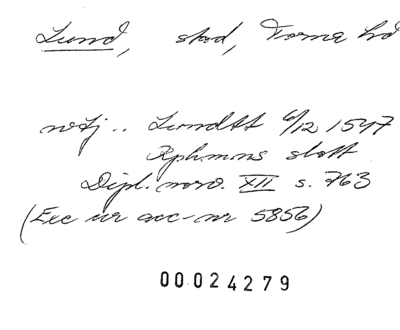 Lund, stad, Torna hd
utj.. Lundtt 6/12 1547
Kphmns slott
Dipl. norv. XII s. 763
(Exc ur acc-nr 5856)
00024279